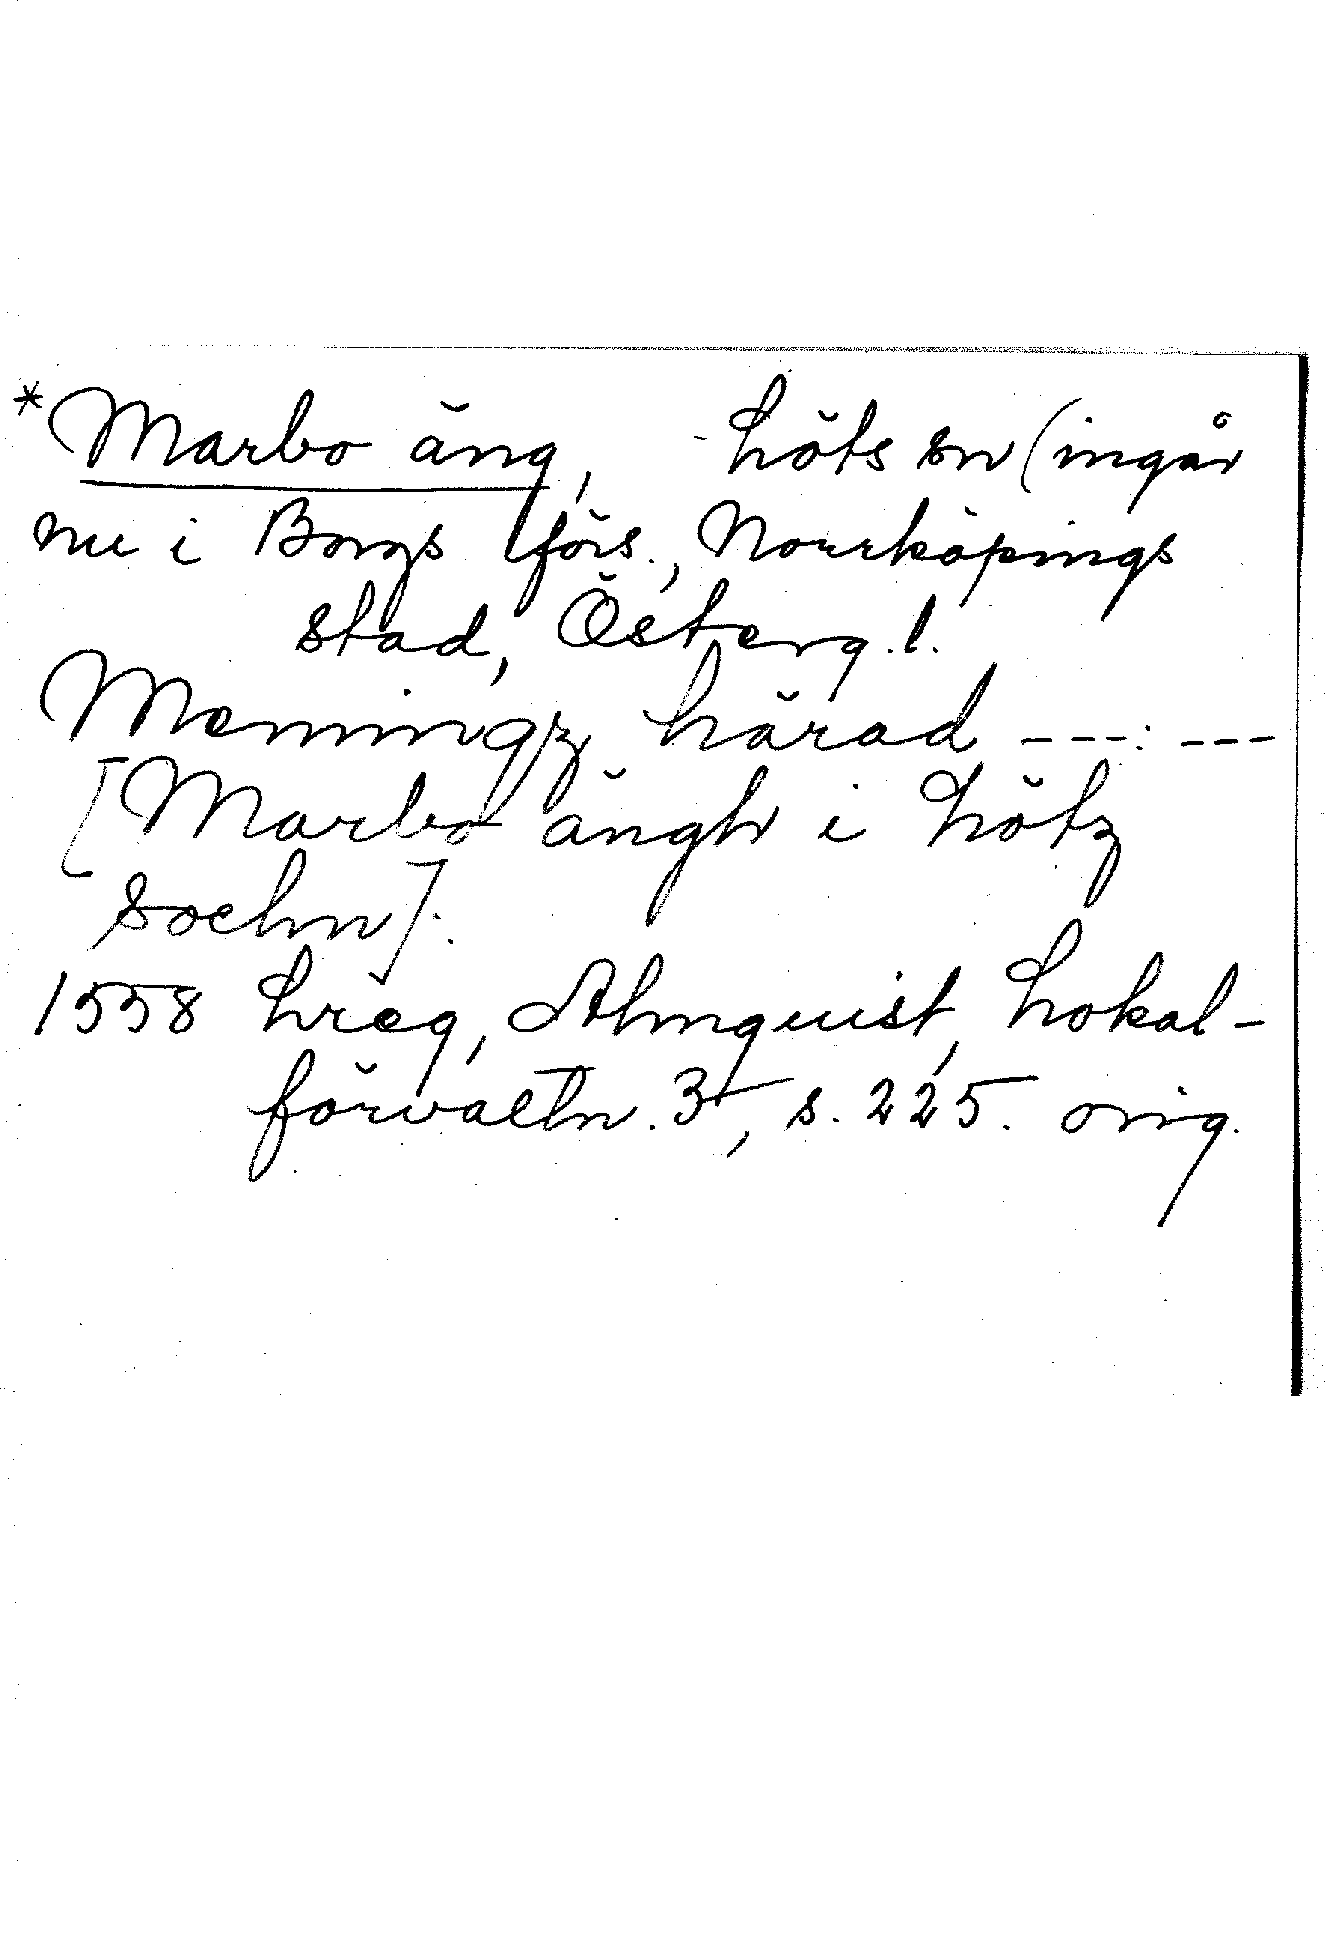 *Marbo äng, Löts sn (ingår
nu i Borgs förs., Norrköpings
stad, Österg.l.
Memmingz härad ---:---
[Marbo ängh i Lötz
Sochn].
1558 Lreg, Almquist, Lokal-
förvaltn. 3, s. 225. orig.